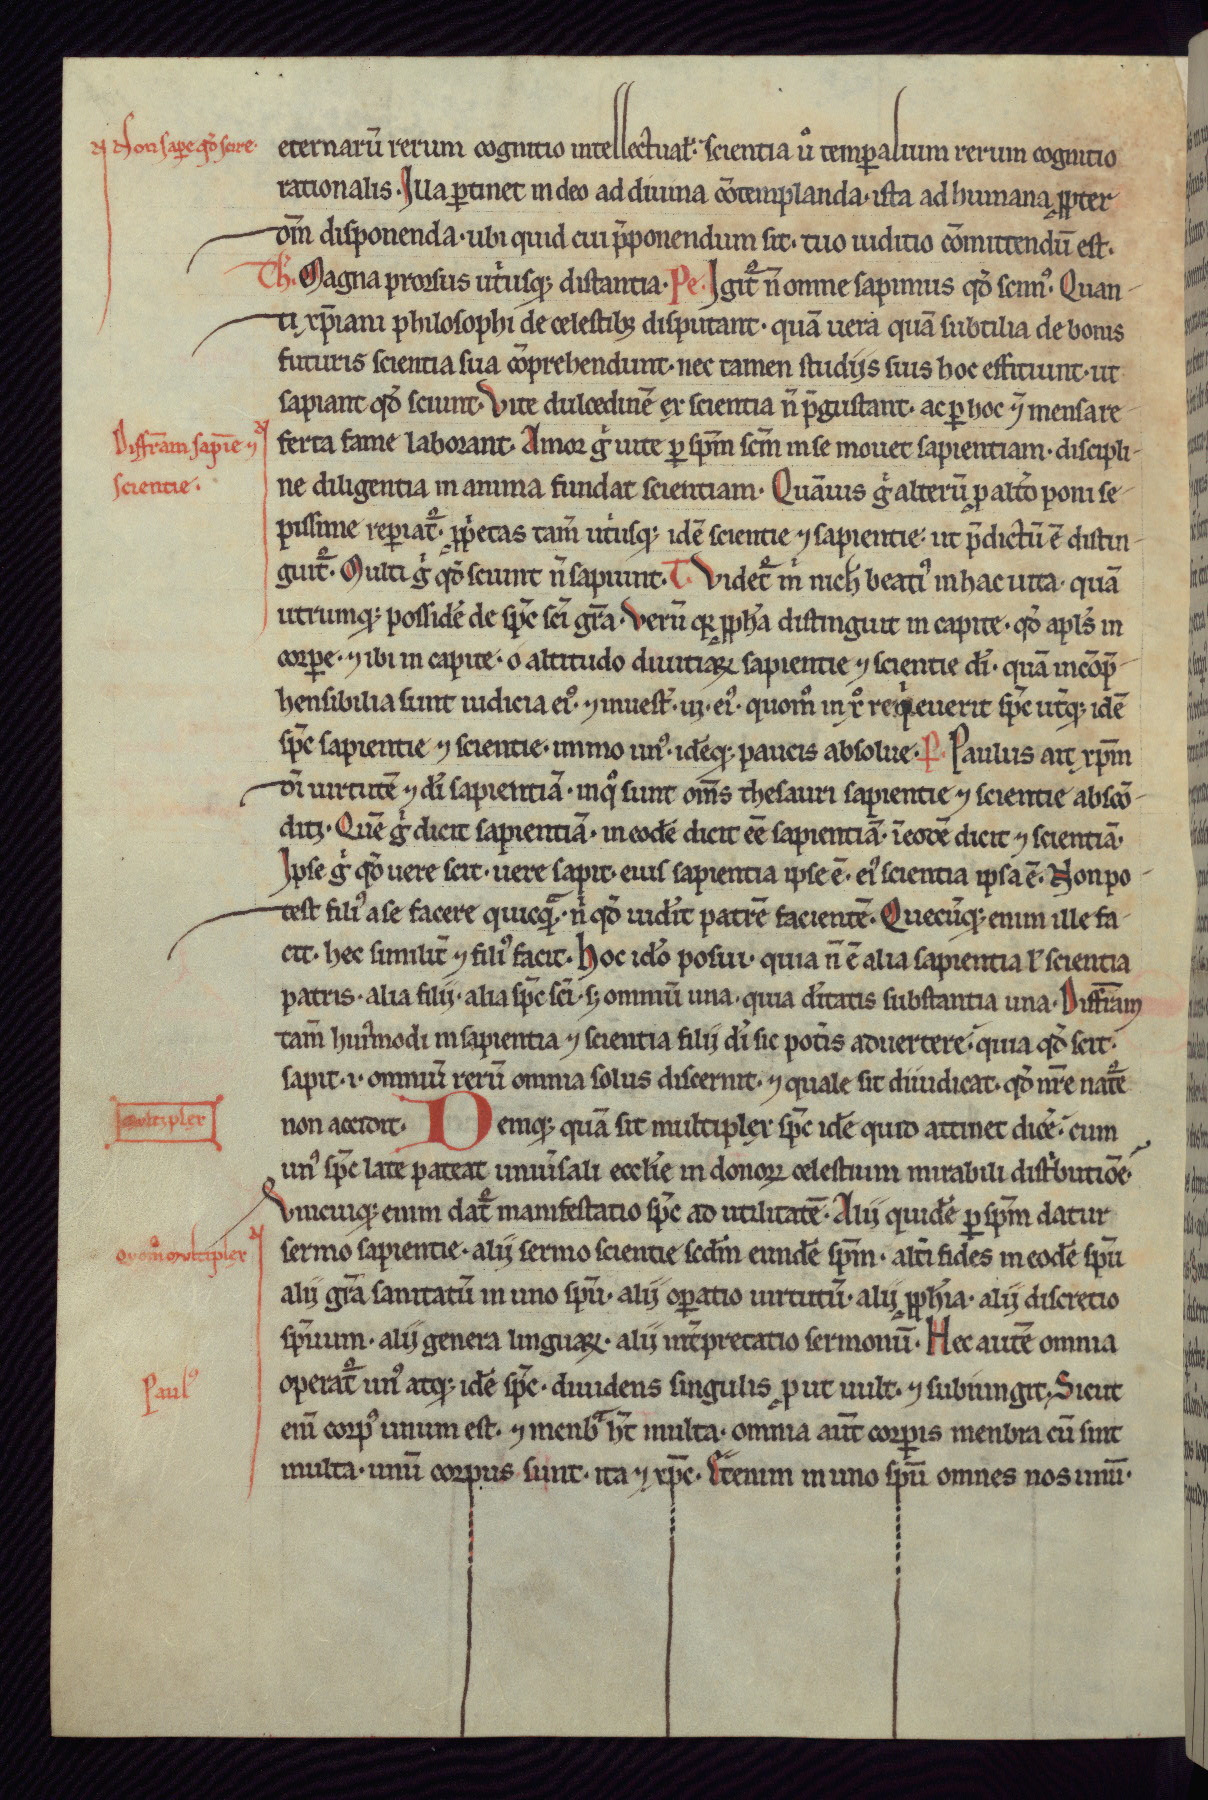 Non saꝑe qđ scire.
eternarū rerum cognitio intellectualꝭ. Scientia ů temꝑalium rerum cognitio
rationalis. Illa ꝑtinet in deo ad diuina cōtemplanda. ista ad humana ꝓpter
om̄ disponenda. ubi quid cui p̄ponendum sit. tuo iuditio cōmittendū est.
Th̓. Magna prorsus utꝰusqꝫ distantia. Pe. Igit᷑ n̄ omne sapimus qđ scimꝰ. Quan-
ti xp̄iani philosophi de celestibꝫ disputant. quā uera quā subtilia de bonis
futuris scientia sua cōprehendunt. nec tamen studijs suis hoc effitiunt. ut
sapiant qđ sciunt. Vite dulcedinē ex scientia n̄ p̄gustant. ac ꝑ hoc ⁊ mensa re-
Diffr̄am sapiē ⁊
scientie.
ferta fame laborant. Amor g̊ uite ꝑ sp̄m sc̄m in se mouet sapientiam. discipli-
ne diligentia in anima fundat scientiam. Quāuis g̊ alterū ꝑ altꝰo poni se-
pissime reꝑiat᷑. ꝓpꝰetas tam̄ utꝰusqꝫ idē scientie ⁊ sapientie. ut p̄dictū ē distin-
guit᷑. Multi g̊ qđ sciunt n̄ sapiunt. T. Videt᷑ m̊ nich̓ beatiꝰ in hac uita. quā
utrumqꝫ possidē de sp̄c sc̄i gr̄a. Verū qꝛ ꝓph̓a distinguit in capite. qđ apl̓s in
corꝑe. ⁊ ibi in capite. o altitudo diuitiaꝝ sapientie ⁊ scientie dī. quā incōp̄-
hensibilia sunt iudicia eiꝰ. ⁊ inuest̄. ui. eiꝰ. quom̊ in xͦ reqͥeuerit sp̄c utꝰqꝫ idē
sp̄c sapientie ⁊ scientie. immo unꝰ. idēqꝫ paucis absolue. P. Paulus ait xp̄m
dī uirtutē ⁊ dī sapientiā. in qͦ sunt om̄s thesauri sapientie ⁊ scientie abscō-
diti. Quē g̊ dicit sapientiā. in eodē dicit eē sapientiā. ī eodē dicit ⁊ scientiā.
Ipse g̊ qđ uere scit. uere sapit. eius sapientia ipse ē. eiꝰ scientia ipsa ē. Non po-
test filiꝰ a se facere quicqͣ. n̊ qđ uid̓it patrē facientē. Quecūqꝫ enim ille fa-
cit. hec similit̄ ⁊ filiꝰ facit. Hoc id̓o posui. quia n̄ ē alia sapientia ł scientia
patris. alia filij. alia sp̄c sc̄i. sꝫ omniū una. quia d̓itatis substantia una. Diffr̄am
tam̄ huiꝰmodi in sapientia ⁊ scientia filij dī sic potꝰis aduertere. quia qđ scit.
sapit. i. omniū rerū omnia solus discernit. ⁊ quale sit diiudicat. qđ nr̄e nat᷑e
Multiplex
non accidit. Deniqꝫ quā sit multiplex sp̄c idē quid attinet dicē. cum
unꝰ sp̄c late pateat uniuꝰsali eccl̓ie in donoꝝ celestium mirabili distͥbutiōe.
Vnicuiqꝫ enim dat᷑ manifestatio sp̄c ad utilitatē. Alij quidē ꝑ sp̄m datur
Quom̊ multiplex
sermo sapientie. alij sermo scientie scd̄m eundē sp̄m. altꝰi fides in eodē sp̄u
alij gr̄a sanitatū in uno sp̄u. alij oꝑatio uirtutū. alij ꝓph̓ia. alij discretio
sp̄uum. alij genera linguaꝝ. alij int̄pretatio sermonū. Hec autē omnia
Paulꝰ
operat᷑ unꝰ atqꝫ idē sp̄c. diuidens singulis ꝓut uult. ⁊ subiungit. Sicut
eni̅ corpꝰ unum est. ⁊ menbͣ h̄t multa. omnia aut̄ corꝑis menbra cū sint
multa. unū corpus sunt. ita ⁊ xp̄c. Etenim in uno sp̄u omnes nos unū.